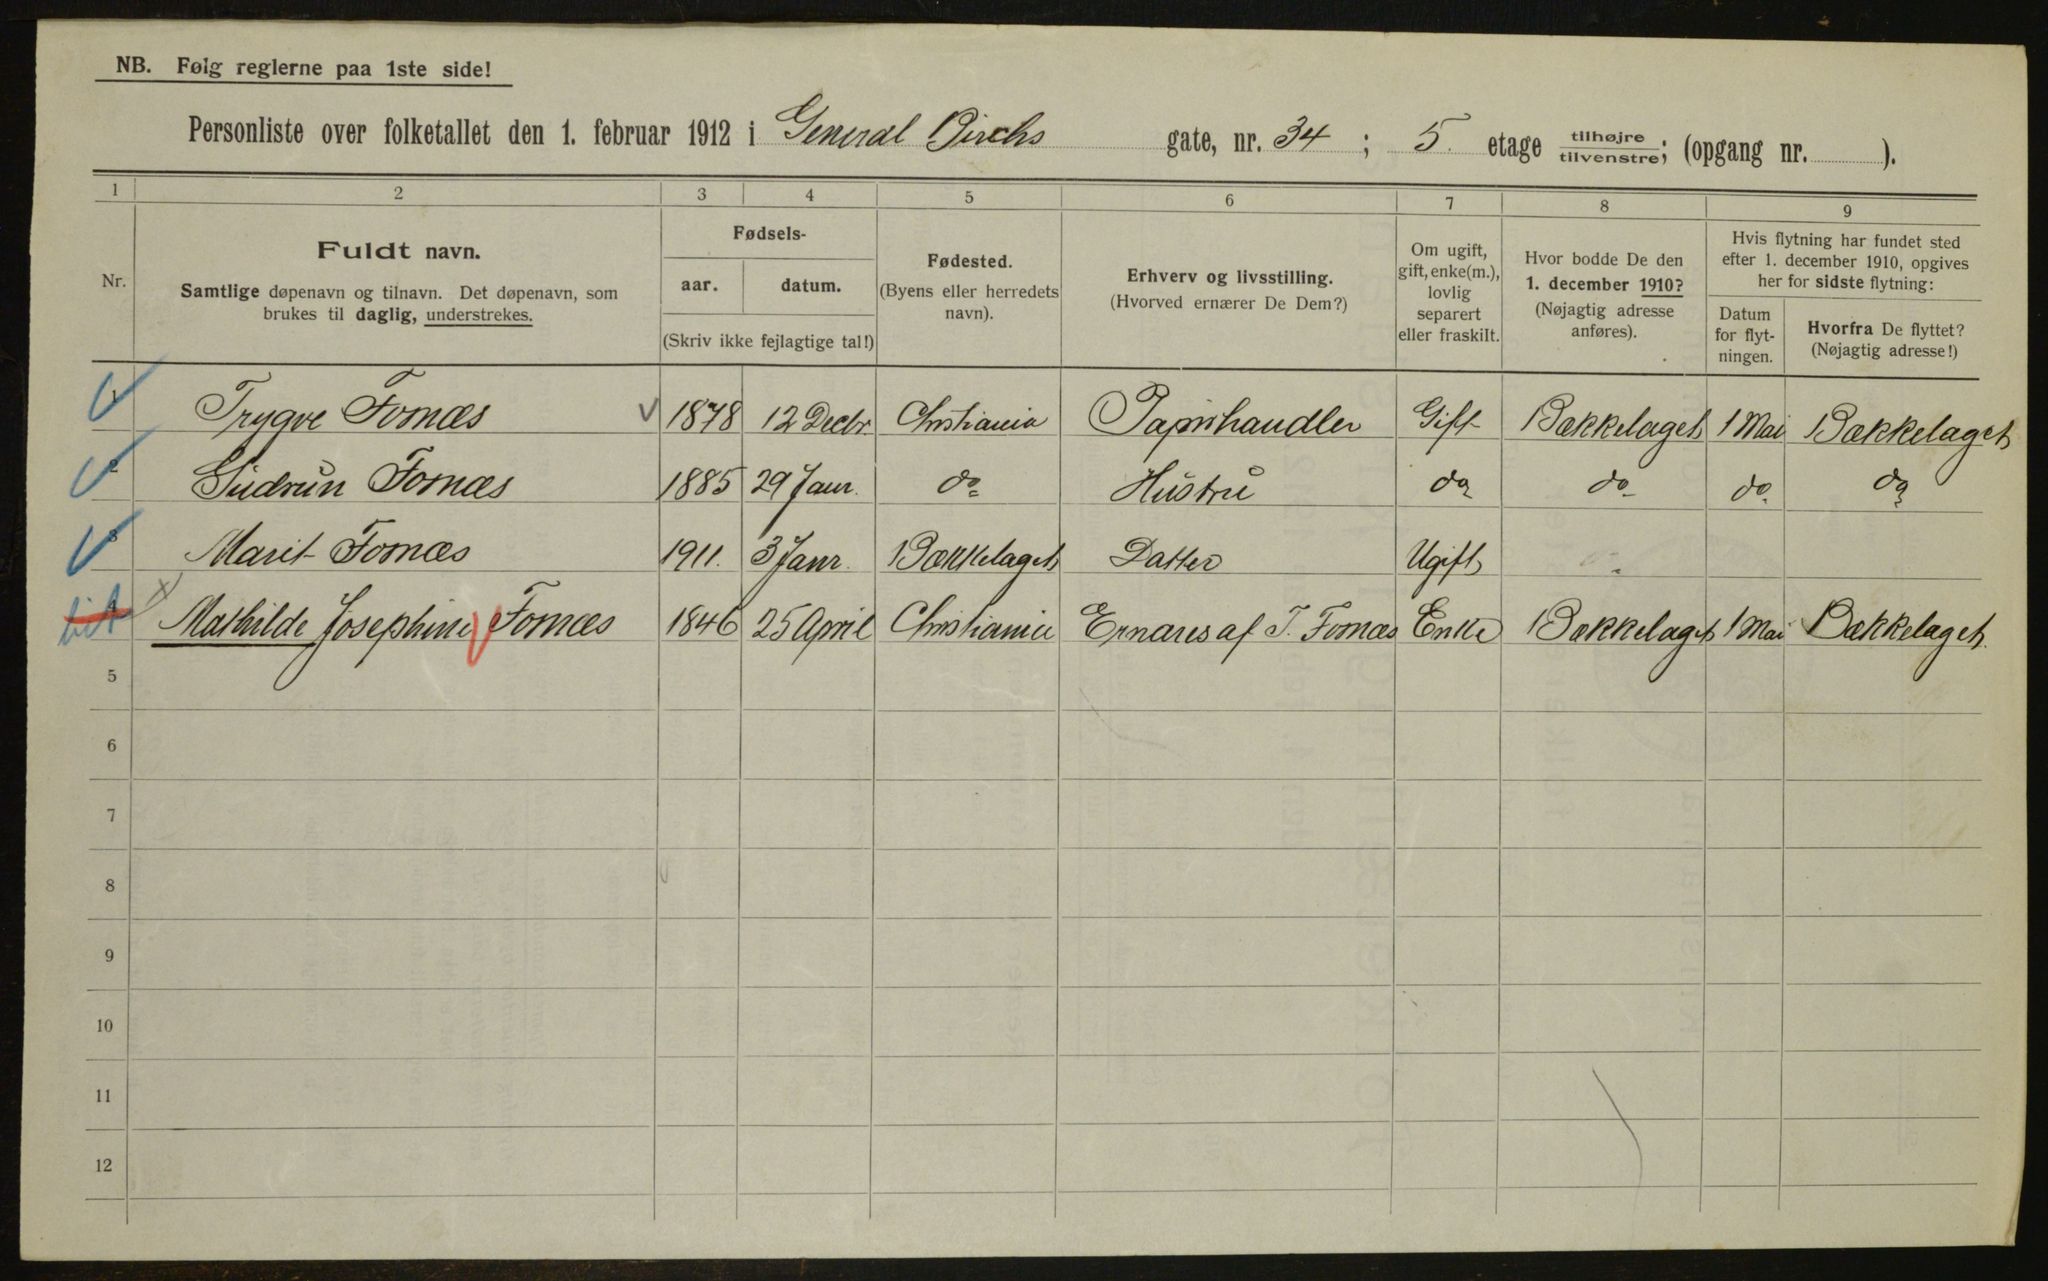 NB. Følg reglerne paa 1ste side!
Personliste over folketallet den 1. februar 1912 i General Birchs gate, nr. 34 ; 5. etage tilhøjre/tilvenstre; (opgang nr. ).
1 2 3 4 5 6 7 8 9
Nr.
Fuldt navn.
Samtlige døpenavn og tilnavn. Det døpenavn, som
brukes til daglig, understrekes.
Fødsels-
aar. datum.
(Skriv ikke fejlagtige tal!)
Fødested.
(Byens eller herredets
navn).
Erhverv og livsstilling.
(Hvorved ernærer De Dem?)
Om ugift,
gift, enke(m.),
lovlig
separert
eller fraskilt.
Hvor bodde De den
1. december 1910?
(Nøjagtig adresse
anføres).
Hvis flytning har fundet sted
efter 1. december 1910, opgives
her for sidste flytning:
Datum
for flyt-
ningen.
Hvorfra De flyttet?
(Nøjagtig adresse!)
1 Trygve Fornæs 1878 12 Decbr. Christiania Papirhandler Gift Bækkelaget 1 Mai Bækkelaget
2 Gudrun Fornæs 1885 29 Janr. do Hustru do do do do
3 Marit Fornæs 1911. 3 Janr. Bækkelaget Datter Ugift
4 Mathilde Josephine Fornæs 1846 25 April Christiania Ernæres af T. Fornæs Enke Bækkelaget 1 Mai Bækkelaget
5
6
7
8
9
10
11
12